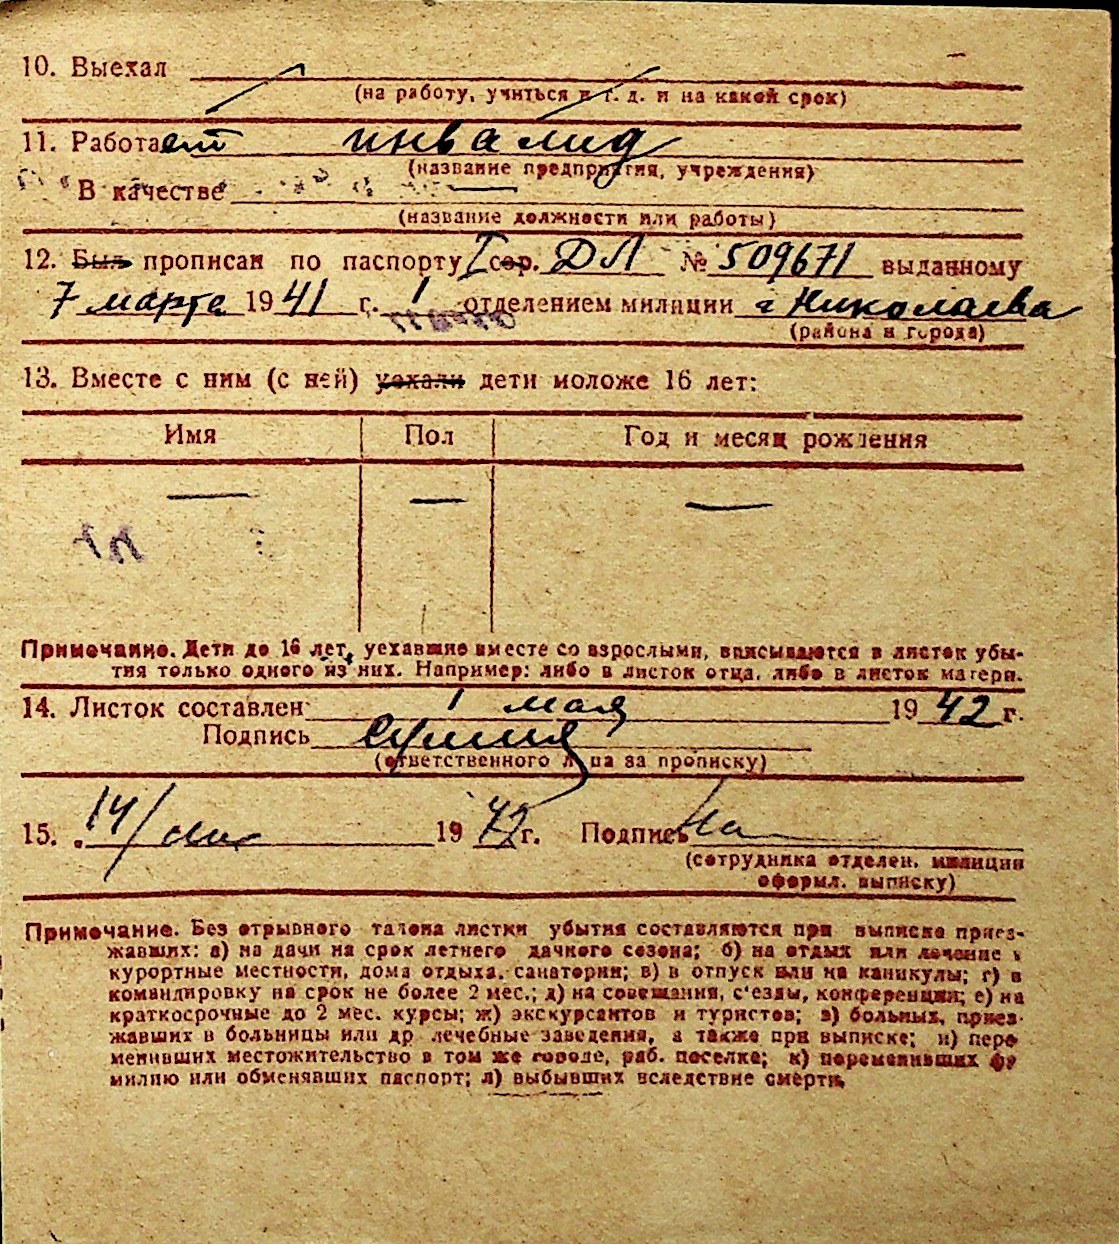 10. Выехал
(на работу, учиться и т. д. и на какой срок)
11. Работает инвалид
(название предприятия, учреждения)
В качестве —
(название должности или работы)
12. Был прописан по паспорту I сер. ДЛ № 509671 выданному
7 марта 1941 г. 1 отделением милиции г Николаева
(района и города)
13. Вместе с ним (с ней) уехали дети моложе 16 лет:
Имя Пол Год и месяц рождения
— — —
Примечание. Дети до 16 лет, уехавшие вместе со взрослыми, вписываются в листок убы-
тия только одного из них. Например: либо в листок отца, либо в листок матери.
14. Листок составлен 1 мая 1942 г.
Подпись
(ответственного лица за прописку)
15. 14/ 1942 г. Подпись
(сотрудника отделен. милиции
оформл. выписку)
Примечание. Без отрывного талона листки убытия составляются при выписке приез-
жавших: а) на дачи на срок летнего дачного сезона; б) на отдых или лечение в
курортные местности, дома отдыха, санатории; в) в отпуск или на каникулы; г) в
командировку на срок не более 2 мес.; д) на совещания, с'езды, конференции; е) на
краткосрочные до 2 мес. курсы; ж) экскурсантов и туристов; з) больных, приез-
жавших в больницы или др лечебные заведения, а также при выписке; и) пере
менивших местожительство в том же городе, раб. поселке; к) переменивших фа
милию или обменявших паспорт; л) выбывших вследствие смерти.